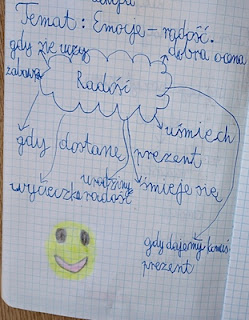 Temat: Emocje - radość.
gdy się uczy
dobra ocena
zabawa
Radość
uśmiech
gdy dostanę prezent
urodziny
wycieczka radość
śmieje się
gdy dajemy komuś
prezent